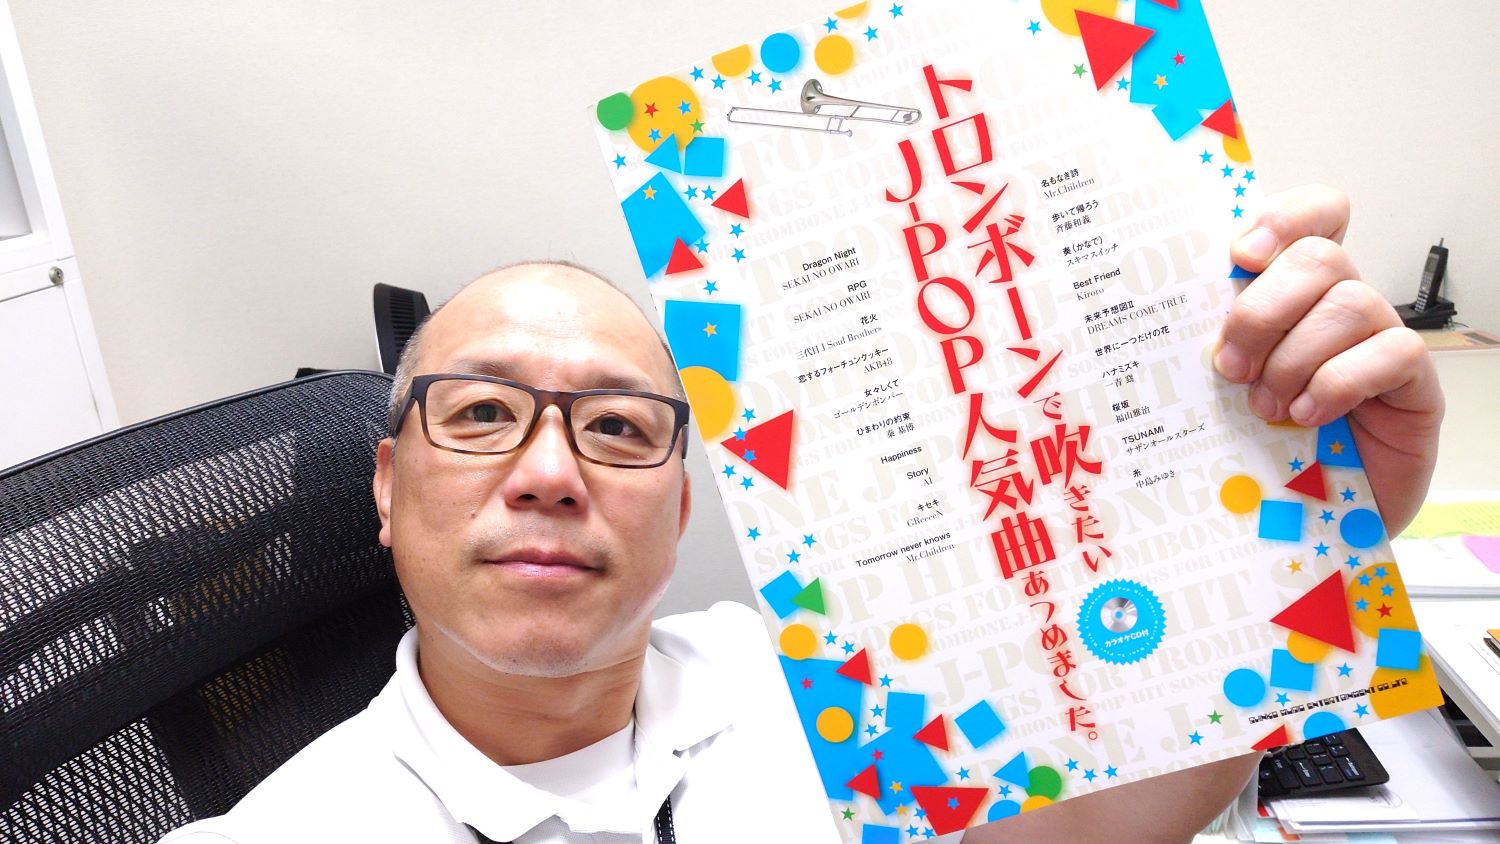 トロンボーンで吹きたい
J-POP人気曲あつめました。
Dragon Night
SEKAI NO OWARI
RPG
SEKAI NO OWARI
花火
三代目 J Soul Brothers
恋するフォーチュンクッキー
AKB48
女々しくて
ゴールデンボンバー
ひまわりの約束
秦 基博
Happiness
Story
AI
キセキ
GReeeeN
Tomorrow never knows
Mr.Children
名もなき詩
Mr.Children
歩いて帰ろう
斉藤和義
奏(かなで)
スキマスイッチ
Best Friend
Kiroro
未来予想図II
DREAMS COME TRUE
世界に一つだけの花
ハナミズキ
一青 窈
桜坂
福山雅治
TSUNAMI
サザンオールスターズ
糸
中島みゆき
カラオケCD付